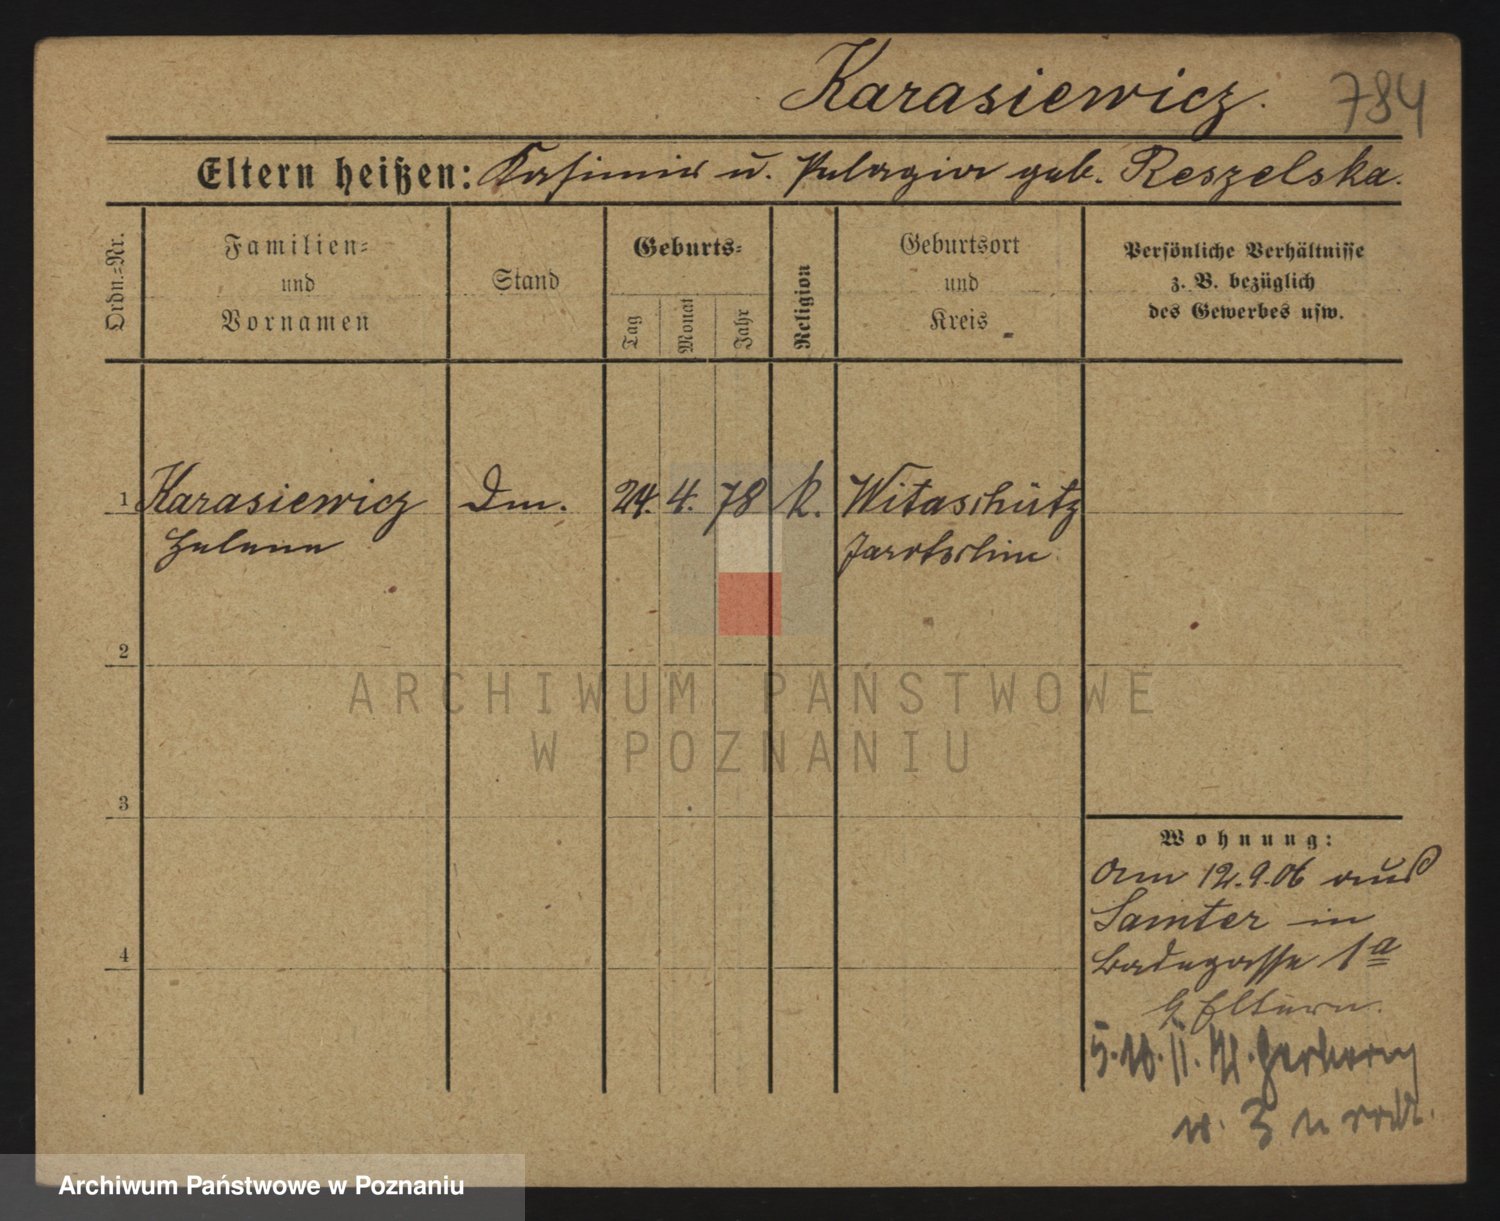 Karasiewicz. 784
Eltern heißen: Kasimir u. Pelagia geb. Reszelska.
Ordn.-Nr.
Familien-
und
Vornamen
Stand
Geburts-
Tag
Monat
Jahr
Religion
Geburtsort
und
Kreis
Persönliche Verhältnisse
z. B. bezüglich
des Gewerbes usw.
1 Karasiewicz Dm. 24. 4. 78 k. Witaschütz
Helene Jarotschin
2
ARCHIWUM PAŃSTWOWE
W POZNANIU
3
Wohnung:
Am 12.9.06 aus
Samter in
Badegasse 1a
b/ Eltern.
5.10.
w. 3
4
Archiwum Państwowe w Poznaniu